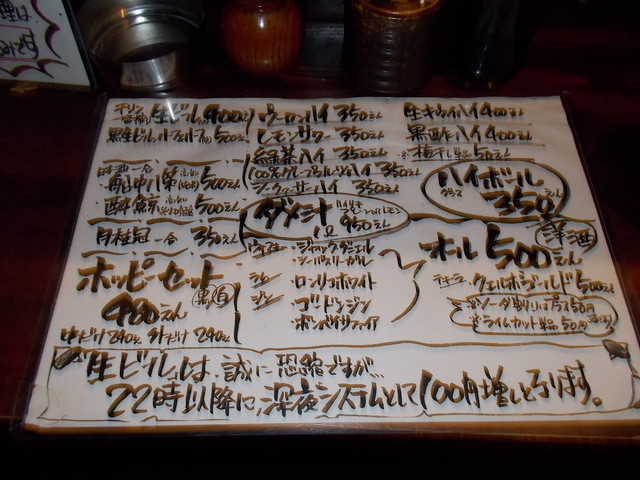 キリン
一番搾り 生ビール 400円
黒生ビル ハーフ&ハーフ 500えん
日本酒 一合
船中八策 (高知) 500えん
酔鯨 500えん
月桂冠 一合 350えん
ホッピーセット
480えん (黒・白)
中だけ240えん 外だけ240えん
ウーロンハイ 350えん
レモンサワー 350えん
緑茶ハイ 350えん
100%グレープフルーツハイ 350えん
シークァーサーハイ 350えん
950えん
ウヰスキー
・ジャックダニエル
・シーバスリーガル
ラム ・ロンリコホワイト
ジン ・ゴードンジン
・ボンベイサファイア
生キウイハイ 400えん
黒酢ハイ 400えん
※梅干し 50えん
ハイボール
グラス 350えん
オール500えん (洋酒)
テキーラ クエルボゴールド 500えん
※ソーダ割りはプラス50円
※ライムカット 50円
生ビールは、誠に恐縮ですが…
22時以降に、深夜システムとして100円増しとなります。